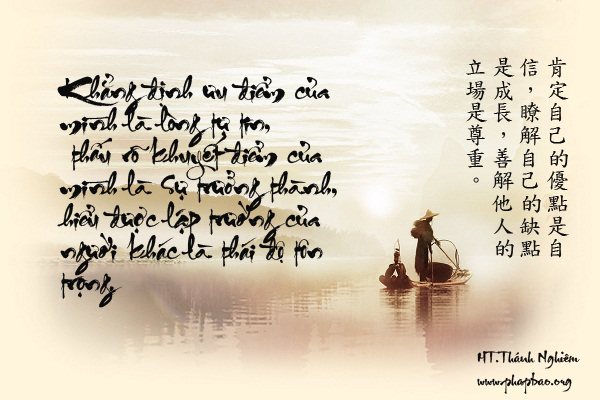 Khẳng định ưu điểm của
mình là lòng tự tin,
thấu rõ khuyết điểm của
mình là sự trưởng thành,
hiểu được lập trường của
người khác là thái độ tôn
trọng
肯定自己的優點是自
信，瞭解自己的缺點
是成長，善解他人的
立場是尊重。
HT.Thánh Nghiêm
www.phapbao.org